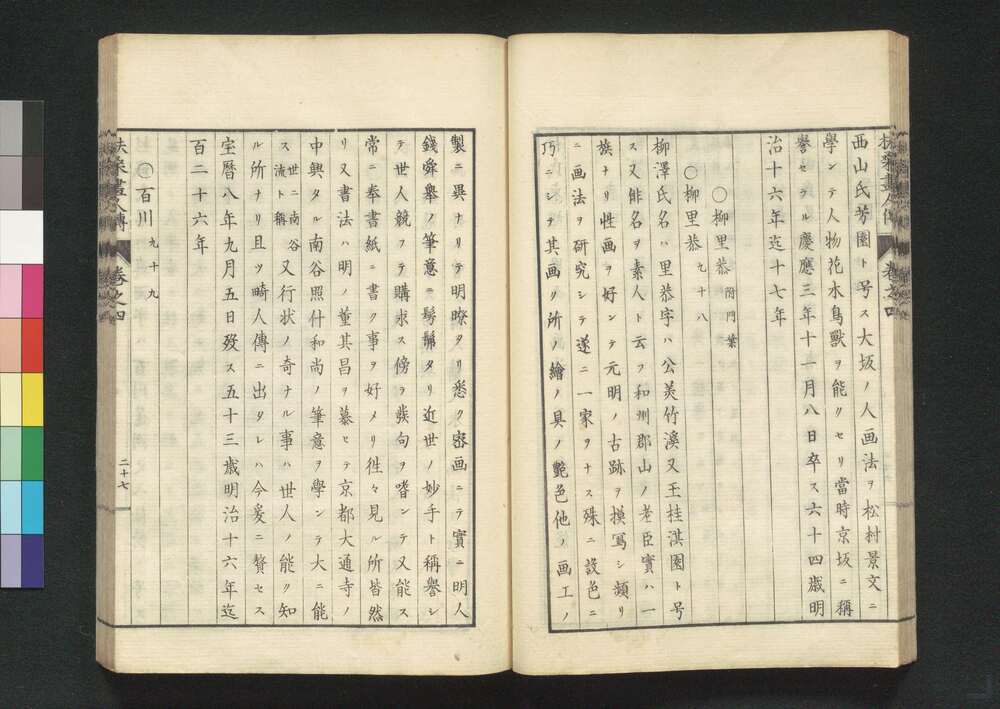 西山氏芳園ト号ス大坂ノ人画法ヲ松村景文ニ
學ンテ人物花木鳥獸ヲ能クセリ當時京坂ニ稱
誉セラル慶應三年十一月八日卒ス六十四歳明
治十六年迄十七年
〇柳里恭 附門葉
〇柳里恭 九十八
柳澤氏名ハ里恭字ハ公美竹溪又玉桂淇園ト号
ス又俳名ヲ素人ト云フ和州郡山ノ老臣實ハ一
族ナリ性画ヲ好ンテ元明ノ古跡ヲ模冩シ頻リ
ニ画法ヲ研究シテ遂ニ一家ヲナス殊ニ設色ニ
巧ニシテ其画ク所ノ繪ノ具ノ艶色他ノ画工ノ
扶桑畫人傳 卷之四
二十七
製ニ異ナリテ明瞭タリ悉ク密画ニテ實ニ明人
錢舜舉ノ筆意ニ髣髴タリ近世ノ妙手ト稱譽シ
テ世人競フテ購求ス傍ラ發句ヲ嗜ンテ又能ス
常ニ奉書紙ニ書ク事ヲ好メリ徃々見ル所皆然
リ又書法ハ明ノ董其昌ヲ慕ヒテ京都大通寺ノ
中興タル南谷照什和尚ノ筆意ヲ學ンテ大ニ能
ス世ニ南谷流ト稱又行状ノ奇ナル事ハ世人ノ能ク知
ル所ナリ且ツ畸人傳ニ出タレハ今爰ニ贅セス
宝暦八年九月五日歿ス五十三歳明治十六年迄
百二十六年
〇百川 九十九